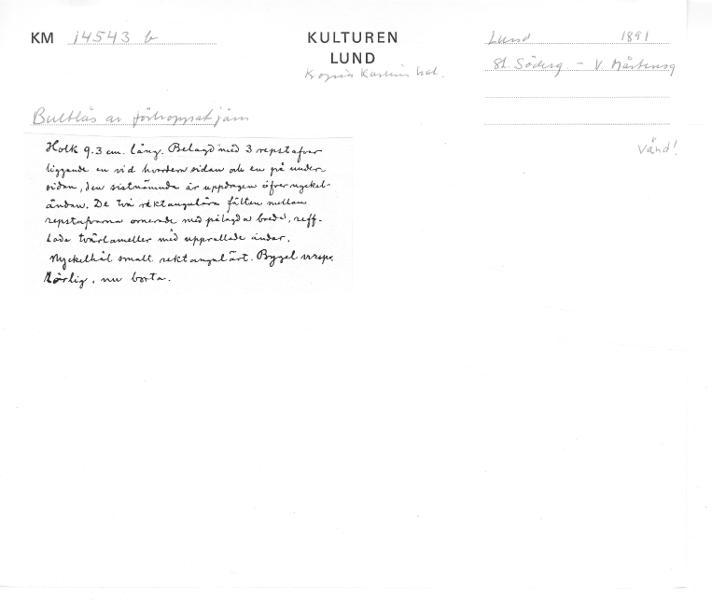 KM 14543 b
KULTUREN
LUND
Kopia Karlins kat.
Lund 1891
St. Söderg - V. Mårtensg
Vänd!
Bultlås av förkopprat järn
Holk 9.3 cm. lång. Belagd med 3 repstafvar
liggande en vid hvardera sidan och en på under
sidan, den sistnämnda är uppdragen öfver nyckel-
ändan. De två rektangulära fälten mellan
repstafvarna ornerade med pålagda breda, reff-
lade tvärlameller med upprullade ändar.
Nyckelhål smalt rektangulärt. Bygel
rörlig, nu borta.